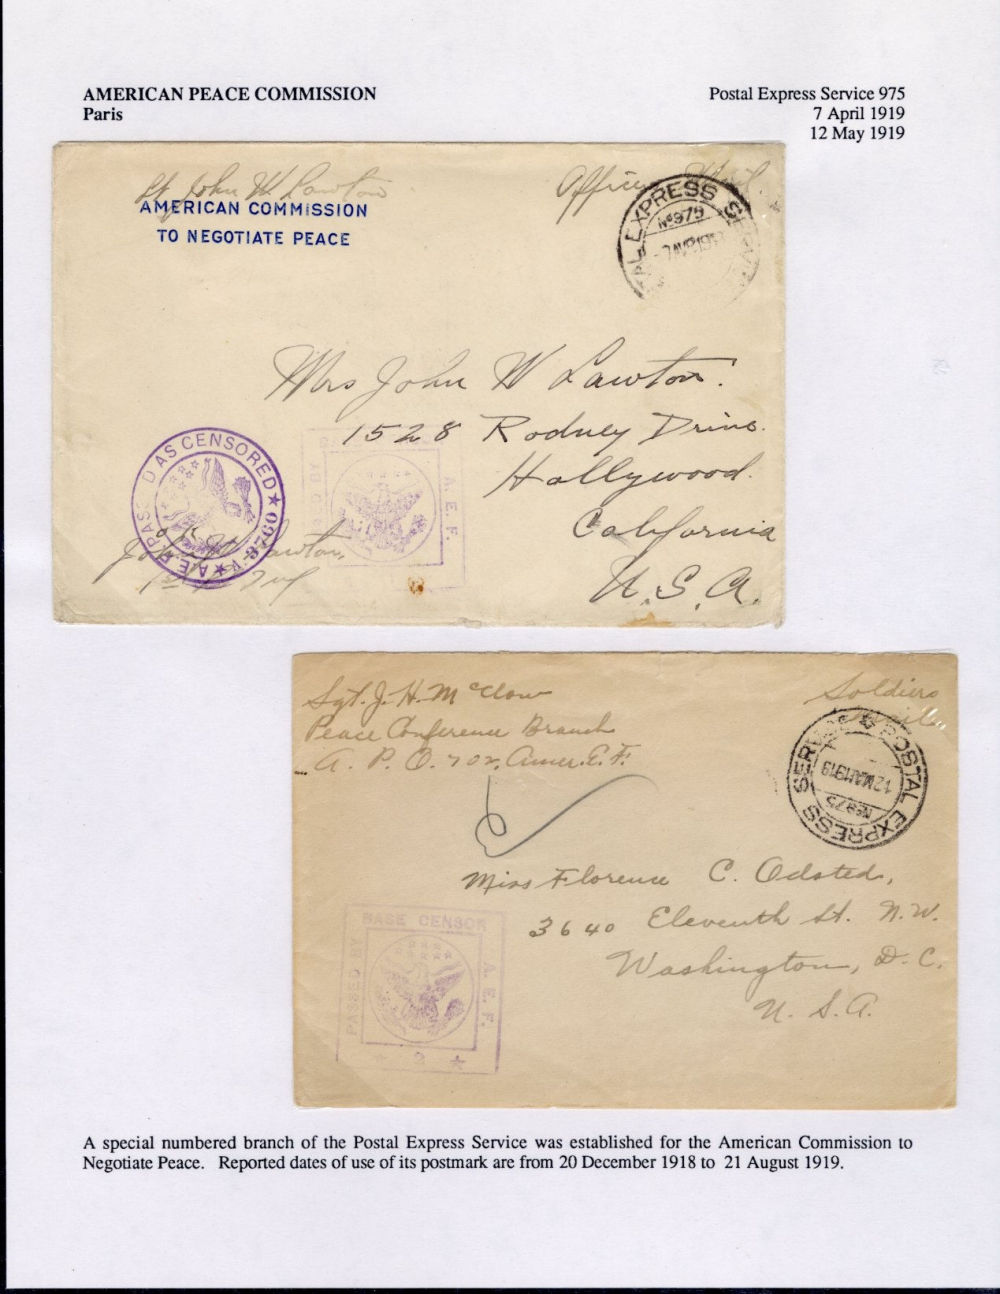 AMERICAN PEACE COMMISSION
Paris
Postal Express Service 975
7 April 1919
12 May 1919
Lt John W Lawton
Officers Mail.
AMERICAN COMMISSION
TO NEGOTIATE PEACE
EXPRESS
No 975
7 AVR 19
Mrs John W Lawton.
1528 Rodney Drive.
Hollywood.
California
U.S.A.
PASSED AS CENSORED
A.E.F.
John W Lawton,
1st Lt Inf
A.E.F.
Sgt. J. H. McClow
Peace Conference Branch
A. P. O. 702, Amer. E. F.
Soldiers
Mail
POSTAL EXPRESS SERVICE
No 975
12 MAI 1919
Miss Florence C. Odsted,
3640 Eleventh St. N.W.
Washington, D.C.
U. S. A.
BASE CENSOR
PASSED BY
A.E.F.
2
A special numbered branch of the Postal Express Service was established for the American Commission to
Negotiate Peace. Reported dates of use of its postmark are from 20 December 1918 to 21 August 1919.